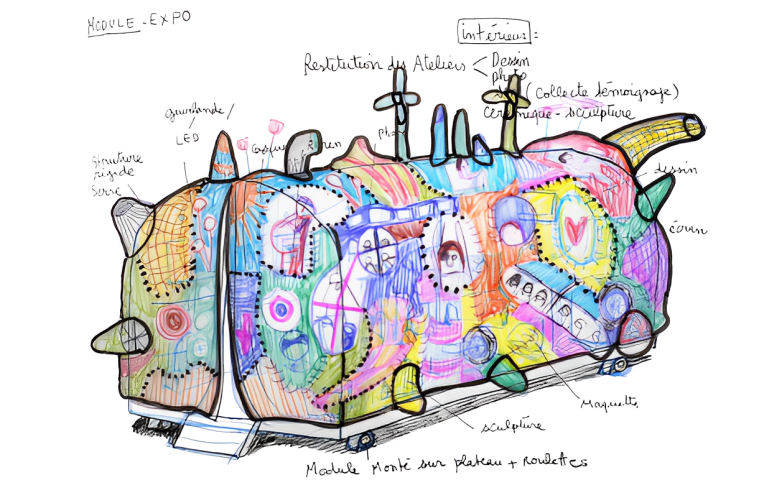 MODULE - EXPO
intérieur =
Restitution des Ateliers < Dessin
photo
(collecte témoignage)
céramique - sculpture
guirlande /
LED
photo
Structure
rigide
Serre
dessin
écran
Maquette
sculpture
Module Monté sur plateau + Roulettes